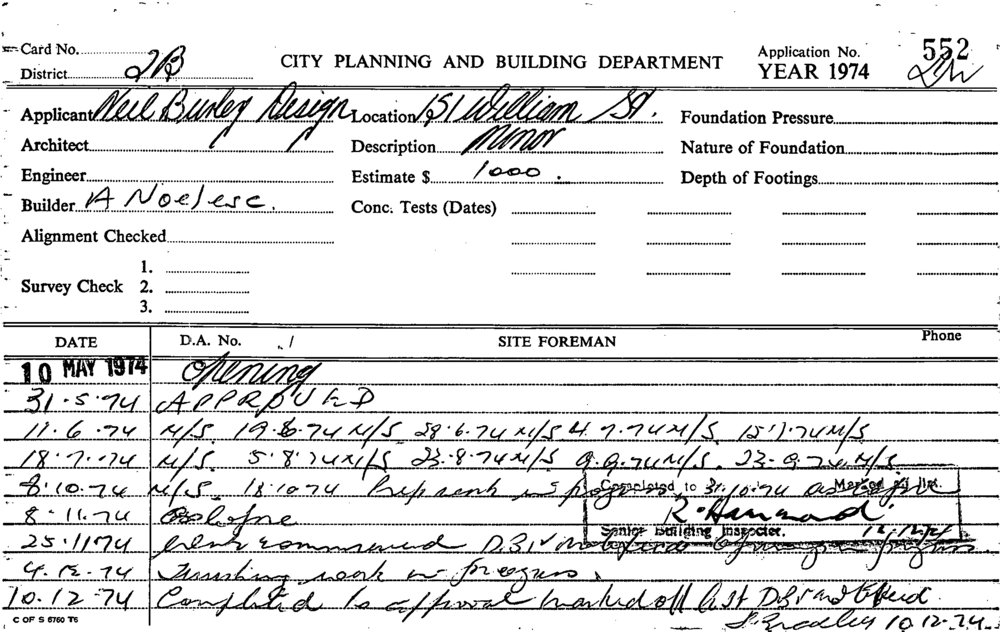 Card No. CITY PLANNING AND BUILDING DEPARTMENT Application No. 552
District 2B YEAR 1974
Applicant Neil Burley Design Location 151 William St. Foundation Pressure
Architect Description Minor Nature of Foundation
Engineer Estimate $ 1000. Depth of Footings
Builder A Conc. Tests (Dates)
Alignment Checked
1.
Survey Check 2.
3.
DATE D.A. No. / SITE FOREMAN Phone
10 MAY 1974 Opening
31.5.74 APPROVED
11.6.74 N/S. 19.6.74 N/S 28.6.74 N/S 4.7.74 N/S. 15.7.74 N/S
18.7.74 N/S. 5.8.74 N/S 23.8.74 N/S 9.9.74 N/S. 23.9.74 N/S.
8.10.74 N/S. 18.10.74 Prep work in 31.10.74 as
Completed to Marked off list.
8.11.74
Senior Building Inspector. 12/12/74
25.11.74 commenced D.B.
4.12.74 Finishing work in progress.
10.12.74 Completed to approval marked off list
10.12.74
C OF S 6760 T6